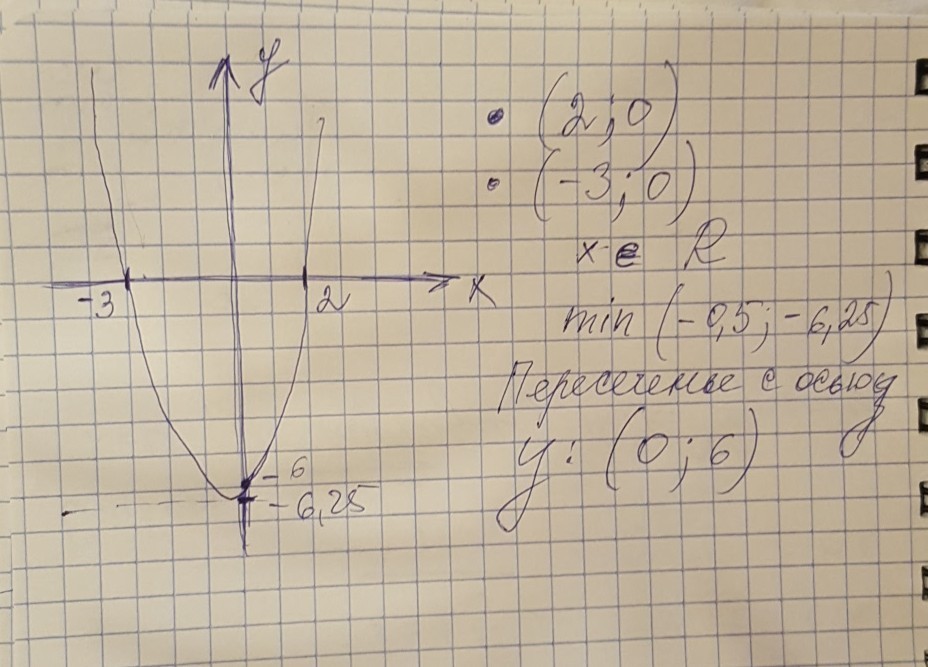 y
• (2; 0)
• (-3; 0)
x ∈ R
-3
2
x
min (-0,5; -6,25)
Пересечение с осью y
y: (0; 6)
-6
-6,25